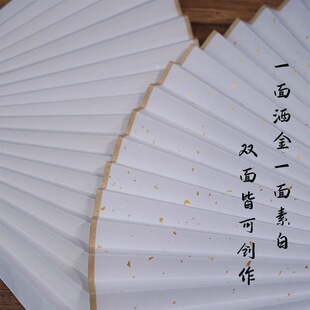 一面洒金一面素白
双面皆可创作